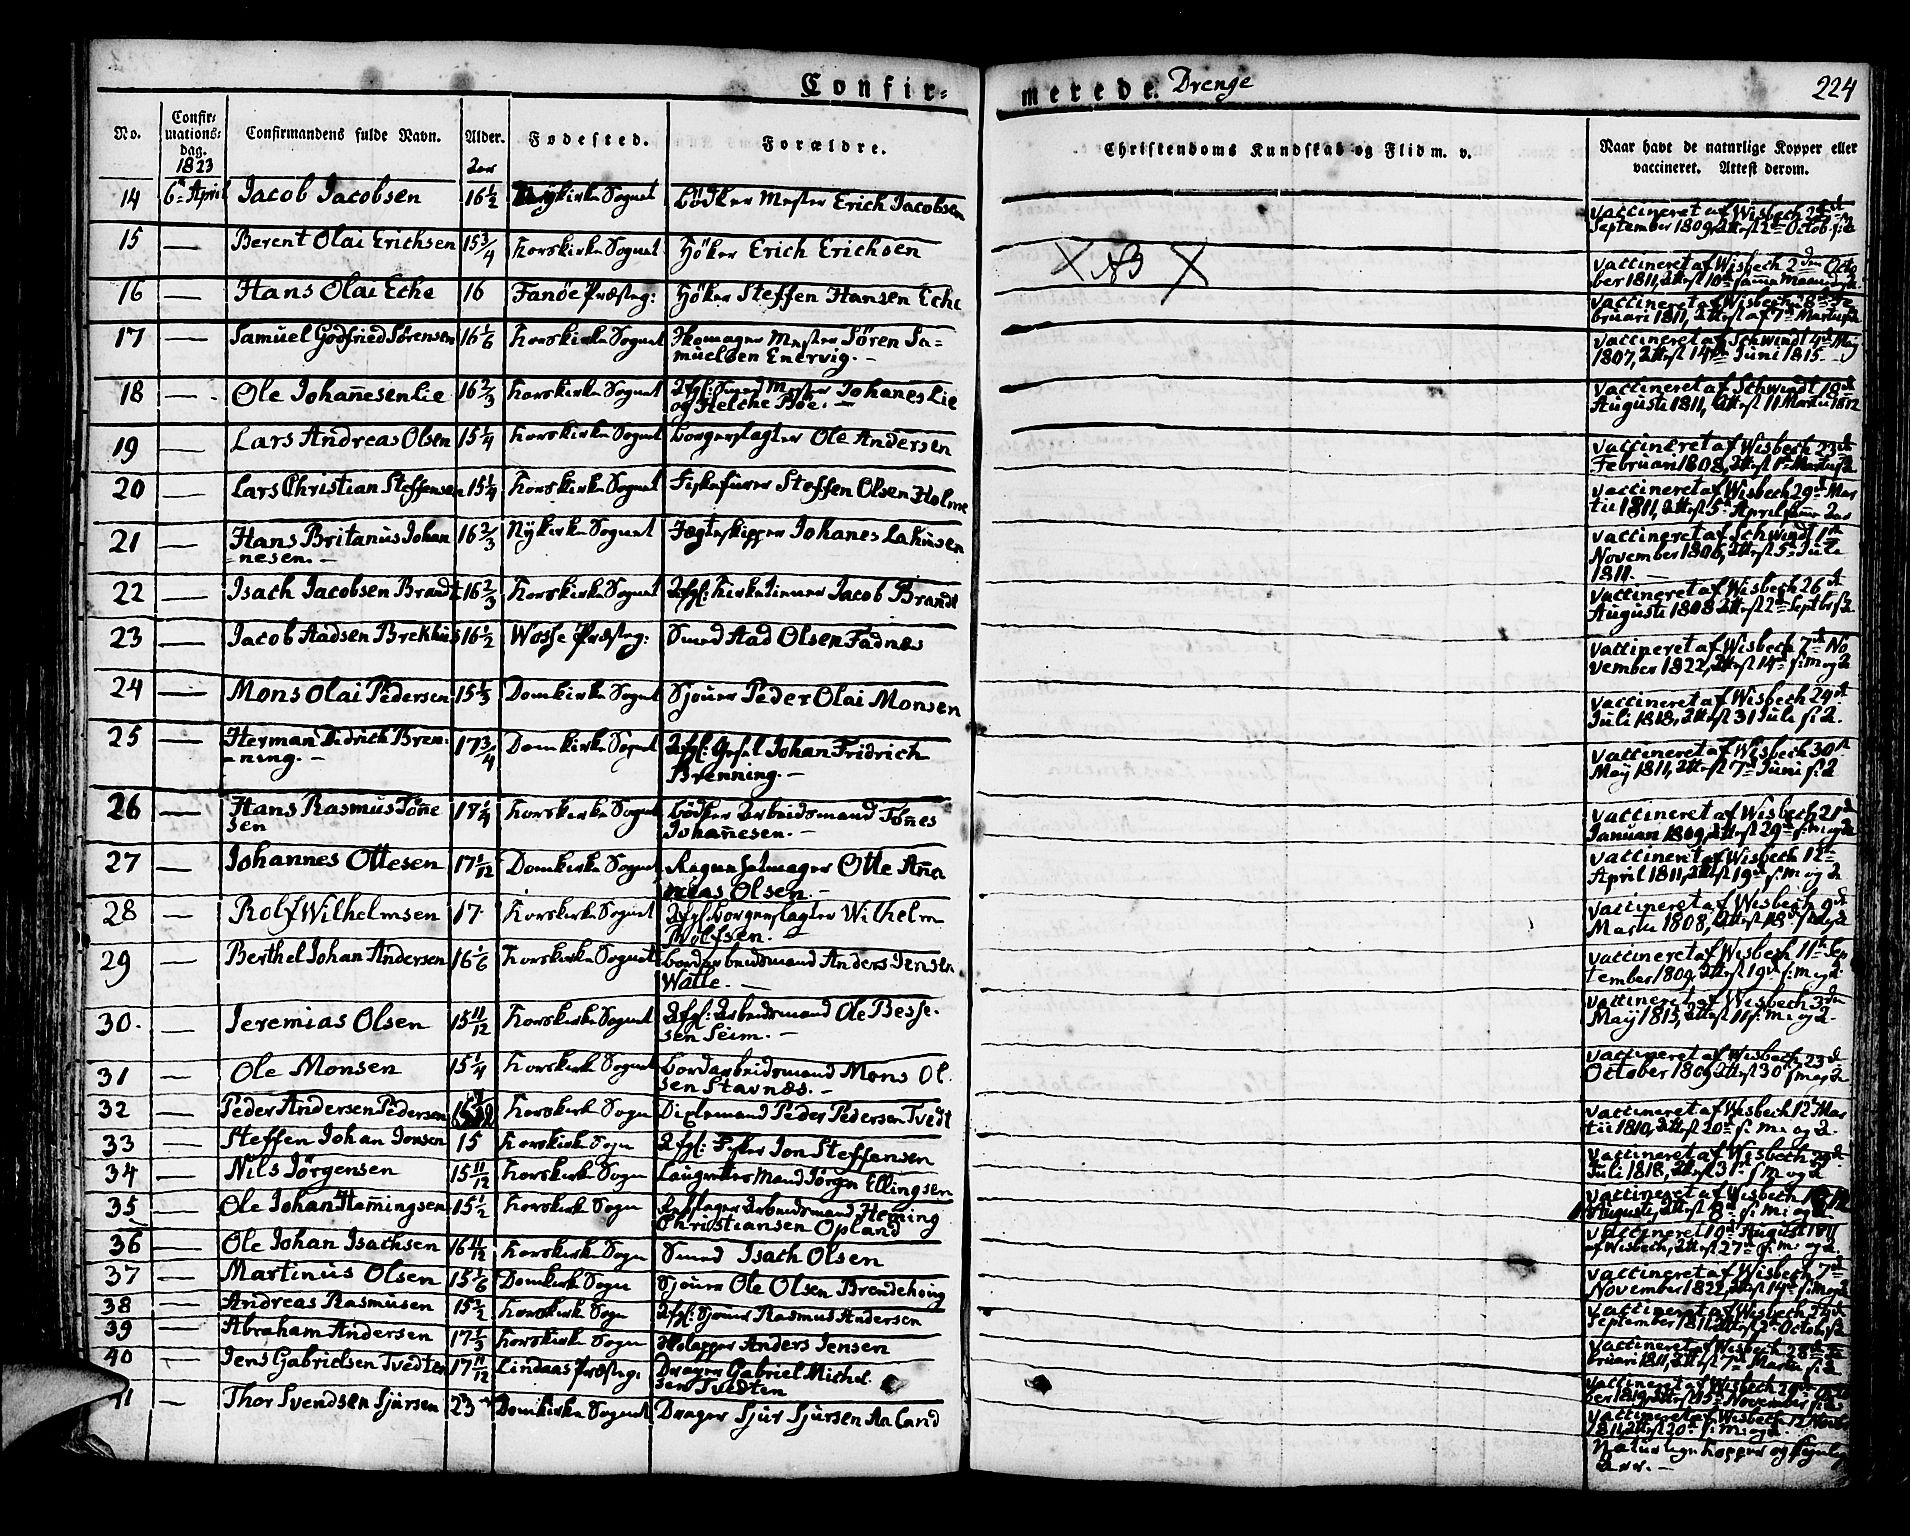 Confir=
merede. Drenge
224
No.
Confir=
mations=
dag.
1823
Confirmandens fulde Navn.
Alder.
Fødested.
Forældre.
Christendoms Kundskab og Flid m. v.
Naar havt de naturlige Kopper eller
vaccineret. Attest derom.
14 6te April Jacob Jacobsen 16 1/2 Nykirke Sognet Bödker Mester Erich Jacobsen
vaccineret af Wisbech
September 1809
15 — Berent Olai Erichsen 15 3/4 Korskirke Sognet Höker Erich Erichsen
X NB X
vaccineret af Wisbech 2den Octo
ber 1811, Attest 10de samme Maaned
16 — Hans Olai Eche 16 Fanöe Præsteg: Höker Steffen Hansen Eche
vaccineret af Wisbech 28de Fe
bruari 1811, Attest af 7de Martii
17 — Samuel Godfried Sörensen 16 1/6 Korskirke Sognet Skomager Mester Sören Sa=
muelsen Enervig. —
vaccineret af Schwindt 4de May
1807, Attest 14de Juni 1815
18 — Ole Johannesen Lie 16 2/3 Korskirke Sognet Afgl: Smed Mester Johanes Lie
og Helche Böe. —
vaccineret af Schwindt 19de
Augusti 1811, Attest 11 Martii 1812
19 — Lars Andreas Olsen 15 1/4 Korskirke Sognet Borgerslagter Ole Andersen
vaccineret af Wisbech 23de
Februari 1808, Attest 1ste Martii
20 — Lars Christian Steffensen 15 1/4 Korskirke Sognet Fiskefurer Steffen Olsen Holme
vaccineret af Wisbech 29de Mar
tii 1811, Attest 5te April samme Aar
21 — Hans Britanus Johan
=nesen. — 16 2/3 Nykirke Sognet Jægteskipper Johanes Lahusen
vaccineret af Schwindt 1ste
November 1806, Attest 5te Julii
1811. —
22 — Isach Jacobsen Brandt 16 2/3 Korskirke Sognet Afgl: Kirketiener Jacob Brandt
vaccineret af Wisbech 26de
Augusti 1808 Attest 2den Septbr
23 — Jacob Aadsen Brekhus 16 1/2 Wosse Præsteg: Smed Aad Olsen Fadnæs
vaccineret af Wisbech 7de No
vember 1822, Attest 14de s: m og A
24 — Mons Olai Pedersen 15 1/3 Domkirke Sognet Sjouer Peder Olai Monsen
vaccineret af Wisbech 29de
Juli 1818, Attest 31 Juli s: A.
25 — Herman Didrich Bren=
=ning. — 17 3/4 Domkirke Sognet Afgl: Gesel Johan Fridrich
Brenning. —
vaccineret af Wisbech 30te
May 1811, Attest 7de Juni s: A
26 — Hans Rasmus Tönne
sen 17 1/4 Korskirke Sognet Bödker Arbeidsmand Tönes
Johannesen. —
vaccineret af Wisbech 21de
Januari 1809, Attest 29de s: m og A
27 — Johannes Ottesen 17 1/12 Domkirke Sognet Otte Ana
nias Olsen. —
vaccineret af Wisbech 12te
April 1811, Attest 19de s: m og A
28 — Rolf Wilhelmsen 17. Korskirke Sognet Afgl. Borgerslagter Wilhelm
Rolfsen. —
vaccineret af Wisbech 9de
Martii 1808, Attest 18de s: m og A
29 — Berthel Johan Andersen 16 1/6 Korskirke Sognet Bordarbeidsmand Anders Jensen
Watle. —
vaccineret af Wisbech 11te Sep
tember 1809, Attest 19de s: m og A
30. — Jeremias Olsen 15 11/12 Korskirke Sognet Afgl: Arbeidsmand Ole Besse=
sen Seim. —
vaccineret af Wisbech 3den
May 1813, Attest 11 s: m: og A.
31 — Ole Monsen 15 1/4 Korskirke Sognet Bordarbeidsmand Mons Ol=
sen Stavnæs. —
vaccineret af Wisbech 23de
October 1809, Attest 30te s: m og A
32 — Peder Andersen Pedersen Korskirke Sogn Peder Pedersen Tvedt
vaccineret af Wisbech 12te Mar
tii 1810, Attest 20de s: m: og A.
33 — Steffen Johan Jonsen 15 Korskirke Sogn Afgl: Fisker Jon Steffensen
vaccineret af Wisbech
Juli 1818, Attest 31te s: m og A
34 — Nils Jörgensen 15 11/12 Korskirke Sogn Laugrettes Mand Jörgen Ellingsen
vaccineret af Wisbech
Augusti, Attest 8de s: m: og A
35 — Ole Johan Hemingsen 15 1/2 Korskirke Sogn Arbeidsmand Heming
Christiansen Opland
vaccineret 19de August 1811
af Wisbech, Attest 27de s: m: og A.
36 — Ole Johan Isachsen 16 11/12 Korskirke Sogn Smed Isach Olsen
vaccineret af Wisbech 7de
November 1822, Attest 14de s: m og A
37 — Martinus Olsen 15 1/6 Domkirke Sogn Sjouer Ole Olsen Brendehoug
vaccineret af Wisbech
September 1811 Attest 2. Octob s: A
38 — Andreas Rasmusen 15 1/2 Korskirke Sogn Afgl: Sjouer Rasmus Andersen
vaccineret af Wisbech 28de Fe
bruari 1811, Attest 7de Martii s: A
39 — Abraham Andersen 17 1/3 Korskirke Sogn Anders Jensen
vaccineret af Wisbech 29de Octo
ber 1819, Attest November s: A
40 — Jens Gabrielsen Tvedten 17 11/12 Lindaas Præsteg: Drager Gabriel Michel
sen Tvedten
vaccineret af Wisbech 12 Novemb
1811, Attest 20de s: m: og A.
41 — Thor Svendsen Sjursen 23 Domkirke Sognet Drager Sjur Sjursen Aaland
Naturlige Kopper og synlige
Arr. —